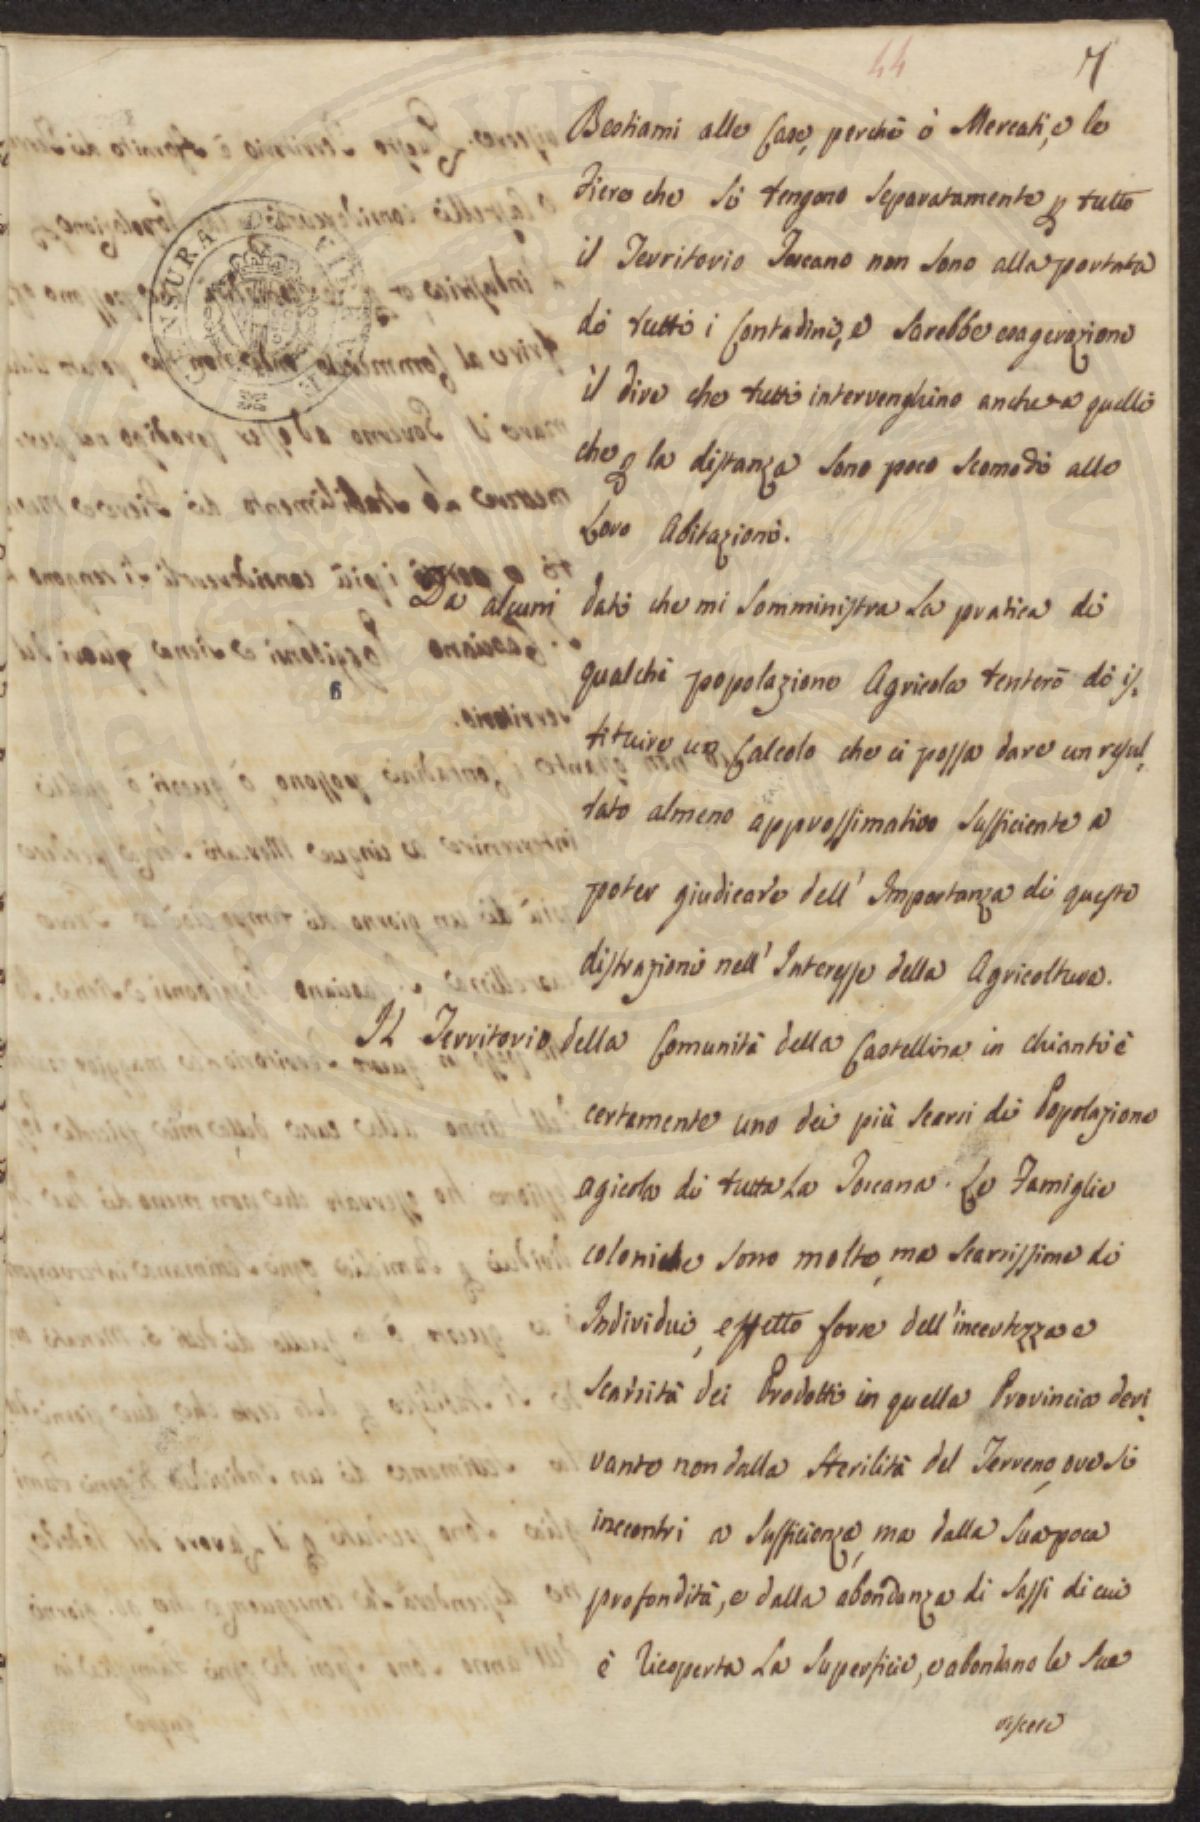 44 7
Bestiami alle Case, perchè i Mercati, e le
Fiere che si tengono separatamente p tutto
il Territorio Toscano non sono alla portata
di tutti i Contadini, e sarebbe esagerazione
il dire che tutti intervenghino anche a quelli
che p la distanza sono poco scomodi alle
Loro Abitazioni.
Da alcuni dati che mi somministra La pratica di
qualche popolazione Agricola tenterò di is=
tituire un Calcolo che ci possa dare un resul=
tato almeno approssimativo sufficiente a
poter giudicare dell' Importanza di queste
distrazioni nell' Interesse della Agricoltura.
Il Territorio della Comunità della Castellina in chianti è
certamente uno dei più scarsi di Popolazione
agicola di tutta La Toscana. Le Famiglie
coloniche sono molte, ma scarsissime di
Individui, effetto forse dell' incertezza e
scarsità dei Prodotti in quella Provincia deri=
vante non dalla sterilità del Terreno, ove si
incontri a sufficienza, ma dalla sua poca
profondità, e dalla abondanza di sassi di cui
è ricoperta La superficie, e abondano le sue
viscere